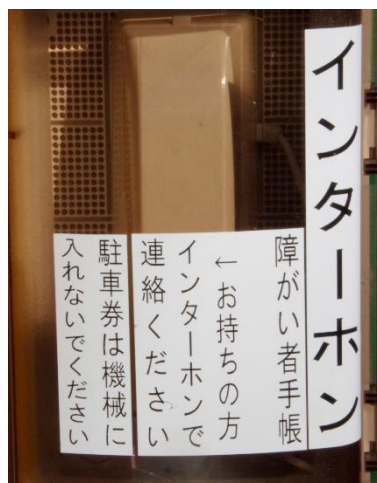 インターホン
障がい者手帳
←お持ちの方
インターホンで
連絡ください
駐車券は機械に
入れないでください